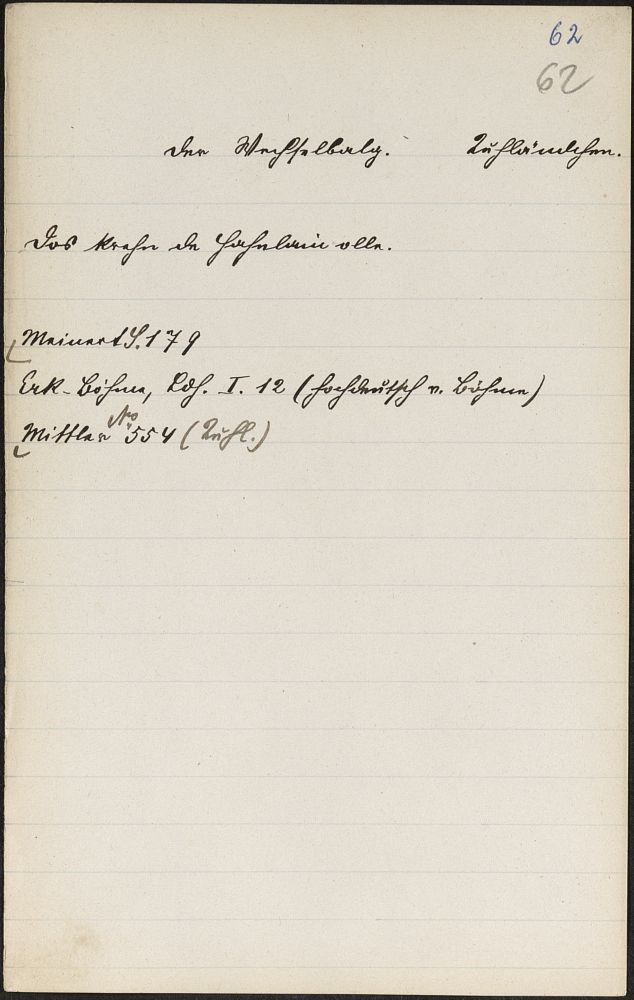 62
62
Der Wechselbalg. Kuhländchen.
Dos krehn de Hahnlain olle.
Meinert S. 179
Erk-Böhme, Ldh. I. 12 (hochdeutsch v. Böhme)
Mittler No 554 (Kuhl.)